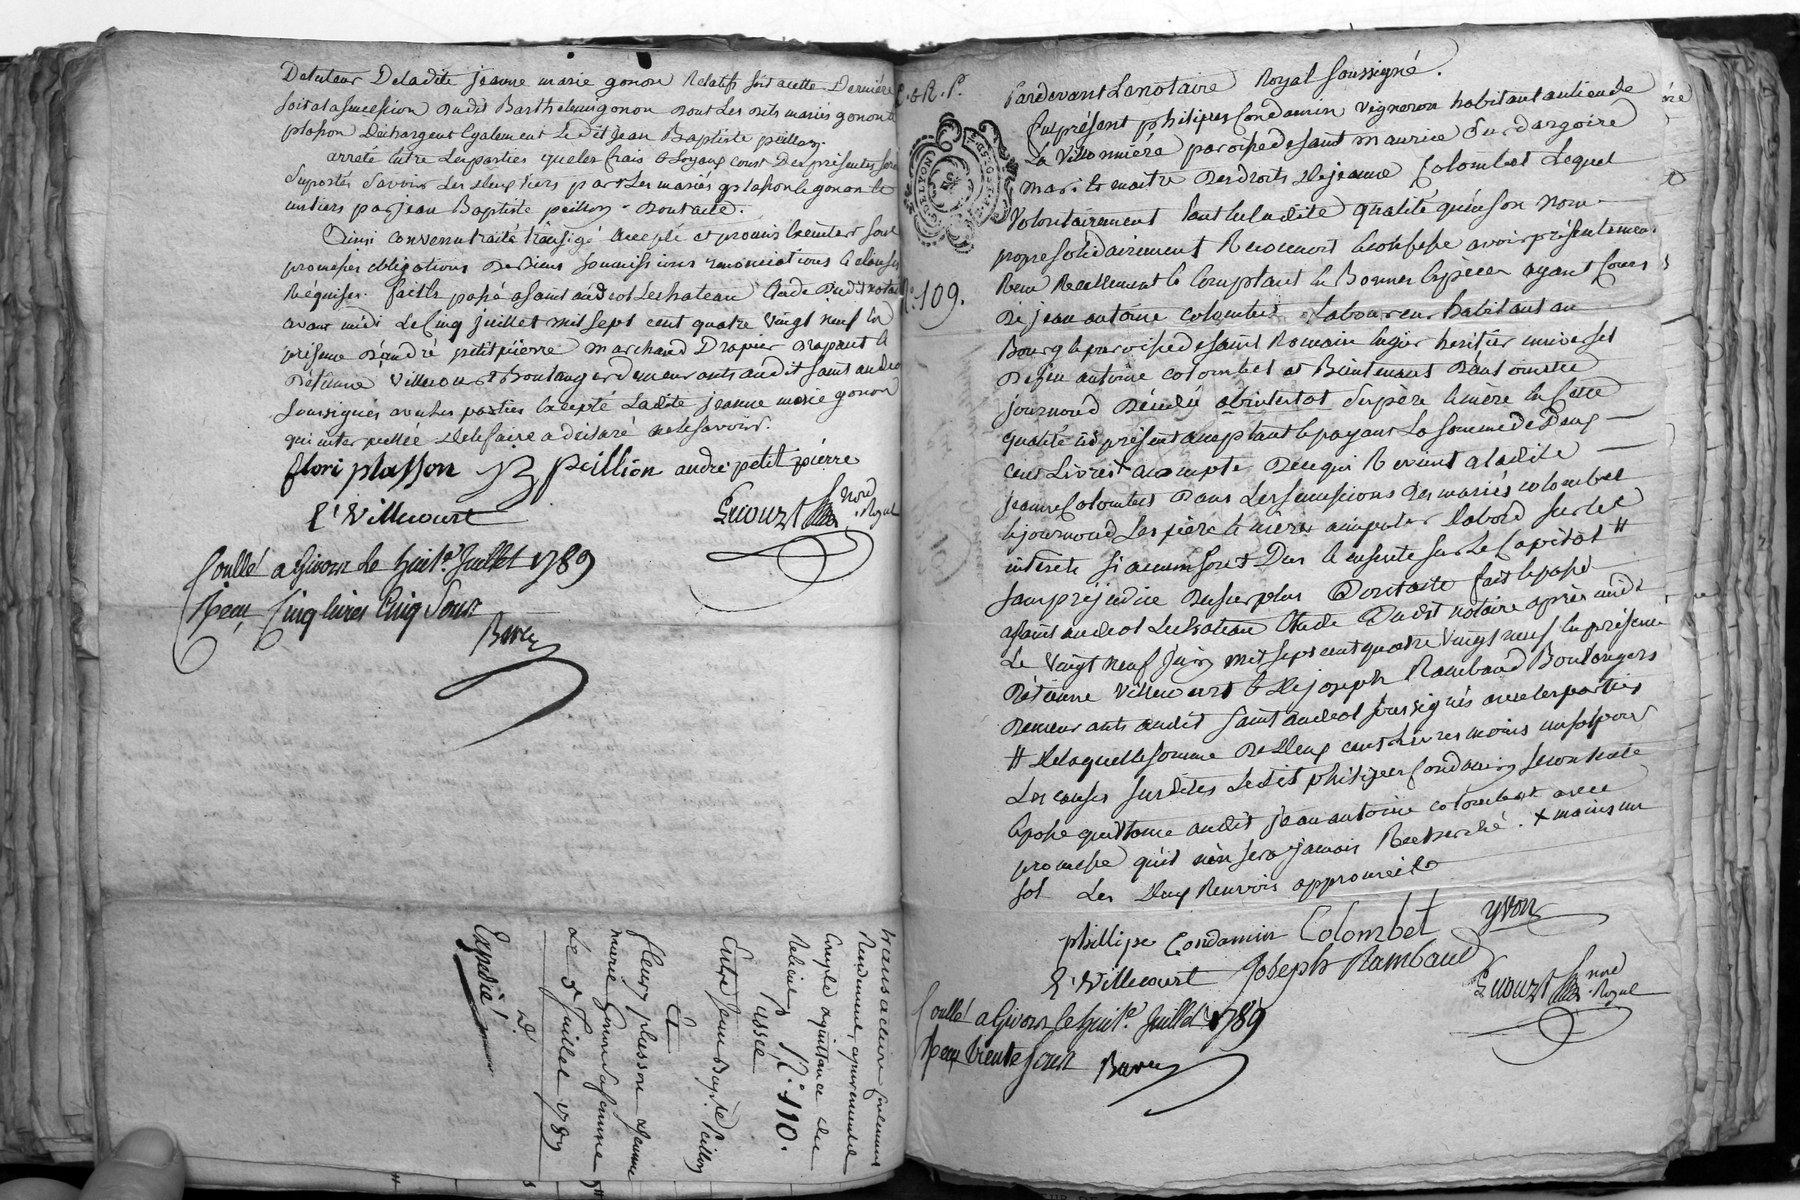 Detuteur De ladite jeanne marie gonon Relatifs soit a cette Derniere
soit a la succession dudit Barthelemi gonon dont Les dits mariés gonon &
plasson Déchargent Egalement Le dit Jean Baptiste peillon.
arreté Entre Les parties que les frais & Loyaux coust Des présentes seront
suportés savoir Les Deux tiers par Les mariés plasson & gonon &
un tiers par jean Baptiste peillon. Dont acte.
Ainsi convenu traité transigé accepté et promis Executer sous
promesses obligations De Biens soumissions renonciations & clauses
Réquises. fait & passé a saint andeol Le chateau Etude Dudit notaire
avant midi Le Cinq juillet mil sept cent quatre vingt neuf En
présence D'andré petit pierre marchand Drapier Drapant &
D'étienne Villecourt Boulanger demeurants audit saint andeol
soussignés avec les parties Excepté Ladite jeanne marie gonon
qui interpellée De le faire a déclaré ne le savoir.
flori plasson JB Peillion andre petit pierre
E. Villecourt
Lucouzt Nore Royal
Conllé a Givors Le huit.e Juillet 1789
Recu Cinq livres Cinq Sous
transaction contenant
Reddition, apurement de
Compte & quittance de
Reliquat N.º 110.
Passée
Entre Jean Bap.te Peillon
Et
fleury plasson & Jeanne
marie Gonon sa femme
Le 5 Juillet 1789
D.
Expédiée
C. & R. P.
N.º 109.
Pardevant Le notaire Royal soussigné.
fut présent philipes Condamin vigneron habitant au lieu de
La Villonnière paroisse de saint maurice sur dargoire
mari & maitre Des droits De jeanne Colombet Lequel
Volontairement tant En ladite qualité qu'en son nom
propre solidairement Reconnoit & confesse avoir présentement
Reçu Réellement & Comptant En Bonnes Espèces ayant Cours
De jean antoine colombet Laboureur habitant au
Bourg & paroisse de saint Romain en gier héritier universel
De feu antoine colombet et Bientenant D'antoinette
journoud Décédée abintestat ses père & mère En Cette
qualité ici présent acceptant & payant La somme de Deux
cens Livres + acompte De ce qui Revient a ladite
jeanne Colombet Dans Les successions Des mariés colombet
& journoud ses père & mère a imputer D'abord sur les
intérêts si aucun sont Dus & ensuite sur Le Capital #
sans préjudice Du surplus Dont acte fait & passé
a saint andeol Le chateau Etude Dudit notaire après midi
Le Vingt neuf juin mil sept cent quatre Vingt neuf En présence
D'étienne Villecourt & De joseph Rambaud Boulangers
Demeurants audit saint andeol soussignés avec les parties
# De laquelle somme De Deux cents Livres moins un sol pour
Les causes susdites Ledit philipes Condamin se contente
& passe quittance audit jean antoine colombet avec
promesse qu'il n'en sera jamais Recherché. + moins un
sol Les Deux Renvois approuvés
phillipe Condamin Colombet yvon
E. Villecourt Joseph Rambaud
Lucouzt Nore Royal
Conllé a Givors le huit.e Juillet 1789
Recu trente sous